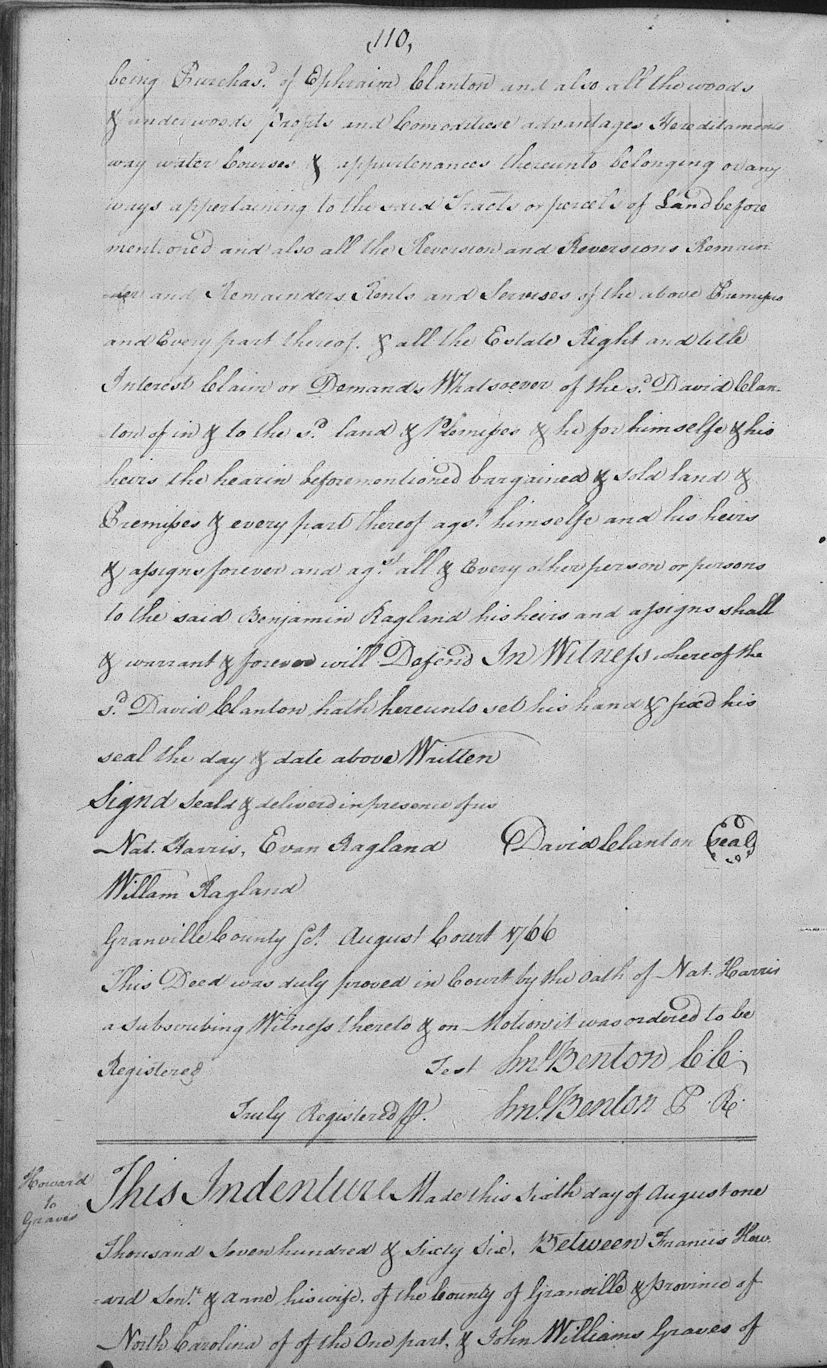 110,
being Purchas.d of Ephraim Clanton and also all the woods
& underwoods profits and Comoditiese advantages Hereditaments
way water Courses & appurtenances thereunto belonging or any
ways appertaining to the said Tracts or percels of Land before
mentioned and also all the Reversion and Reversions Remain
-der and Remainders Rents and Servises of the above Premises
and Every part thereof. & all the Estate Right and title
Interest Claim or Demands Whatsoever of the s.d David Clan-
ton of in & to the s.d land & Premises & he for himselfe & his
heirs the hearin beforementioned bargained & sold land &
Premises & every part thereof ags.t himselfe and his heirs
& assigns forever and ag.st all & Every other person or persons
to the said Benjamin Ragland his heirs and assigns shall
& warrant & forever will Defend In Witness whereof the
s.d David Clanton hath hereunto set his hand & fixd his
seal the day & date above Written
Signd Seald & deliverd in presence of us
Nat. Harris, Evan Ragland David Clanton Seal
Willam Ragland
Granville County Sct. August Court 1766
This Deed was duly proved in Court by the oath of Nat. Harris
a subscribing Witness thereto & on Motion it was ordered to be
Registered Test Sml. Benton C.C.
Truly Registered p. Sml. Benton P. R.
Howard
to
Graves
This Indenture Made this Sixth day of August one
Thousand Seven hundred & Sixty Six. Between Francis How-
-ard Senr. & Anne his wife. of the County of Granville & Province of
North Carolina of of the One part. & John Williams Graves of